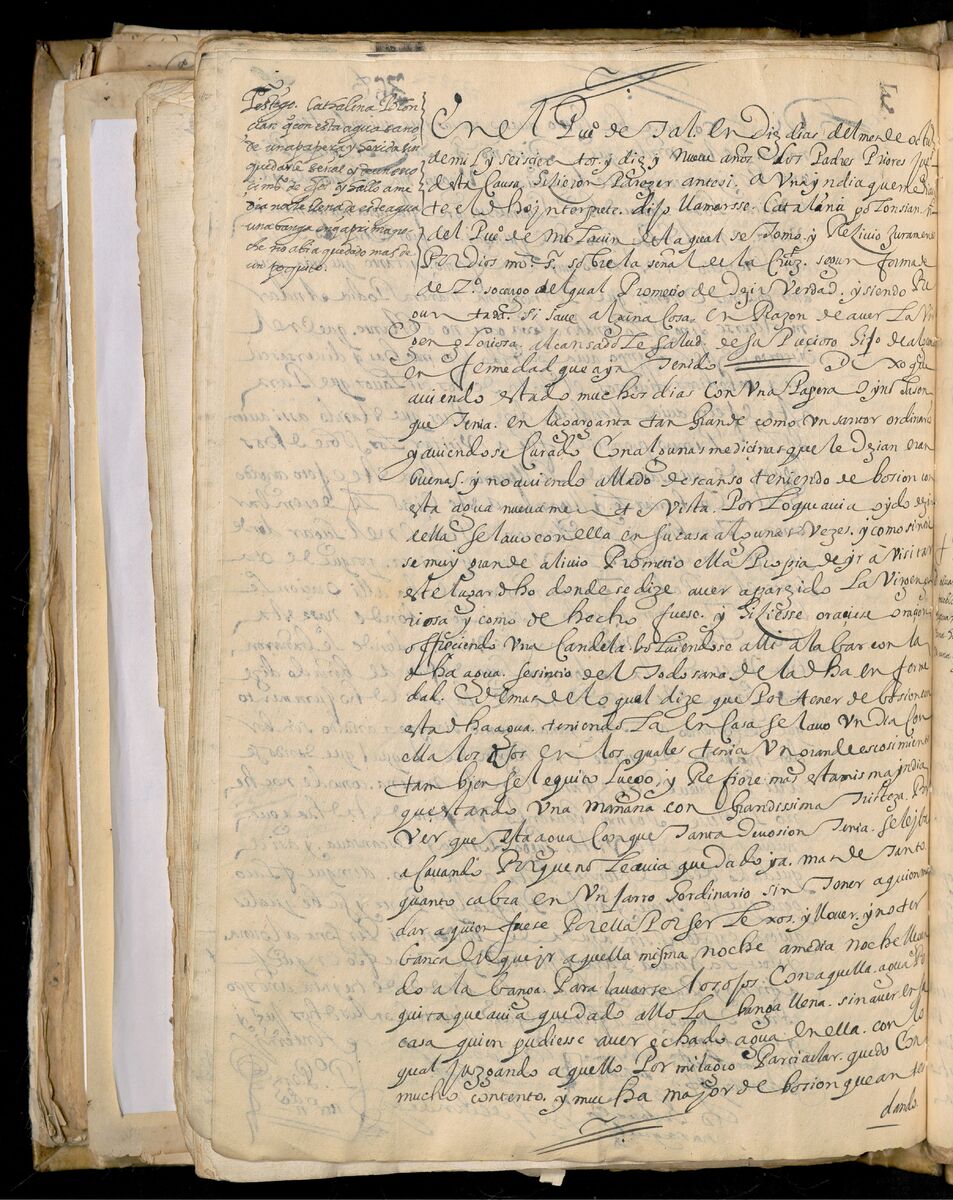 Testigo. Cathalina Lolon
dan. q con esta agua sano
de una papera y herida sin
quedarle señal y de un esco
cimiº de ojos y hallo a me
dia noche llena de este agua
una banga en q a prima no
che no abia quedado mas de
un poquito.
En el Puº de Jal. en Diez dias del mes de octub
de mil y seiscientos y diez y nueve años los Padres Priores Jueçes
desta Causa hisieron Pareçer ante si. a Una yndia que media
te el dho ynterprete. dijo llamarsse. Catalina
del Puº de de la qual se Tomo. y Resivio Juramenº
Por Dios nrº Sr. sobre la señal de la Cruz. segun forma
de dº. so cargo del qual Prometio de Dezir Verdad. y siendo Pre
gun tada. si save alguna Cosa. en Razon de aver La Vir
gen gloriosa. alcansadole salud. de su Precioso hijo de alguna
enfermedad que aya Tenido Dixo que
aviendo estado muchos dias con Una Papera
que Tenia. en la garganta tan Grande como Un santor ordinario
y aviendose Curado Con algunas medicinas que le Dezian eran
buenas. y no aviendo allado descanso teniendo debosion con
esta agua nuevamente Vista. Por lo que avia oydo dezir
della se lavo con ella en su casa algunas Vezes. y como sintie
se muy grande alivio Prometio ella Propia de yr a Visitar
este lugar dho donde se dize aver aparezido La Virgen glo
riosa y como de hecho fuese. y hiziesse oraçion
offresiendo Una Candela. bolviendose alli a labar con la
dha agua. se sintio del Todo sana. de la dha enferme
dad. Demas de lo qual dize que Por tener debosion con
esta dha agua. teniendo La en Casa se lavo Un dia Con
ella los ojos en los quales tenia Un grande escosimiento
tambien se le quito Luego. y Refiere mas esta misma yndia
que estando Una mañana con Grandissima Tristeza. Por
Ver que esta agua Con que Tanta Devosion Tenia. se le yba
acavando Porque no Le avia quedado ya. mas de Tanto
quanto cabia en Un Jarro hordinario sin Tener a quien man
dar a quien fuese Por ella Por ser Lexos. y llover. y no ter
banca en que yr aquella misma noche a media noche llegan
do a la banga. Para lavarse los ojos. Con aquella. agua Po
quita que avia quedado allo La banga llena. sin aver en su
casa quien pudiesse aver echado agua en ella. con lo
qual Juzgando aquello Por milagro Particular. quedo Con
mucho contento. y mucha mayor debosion que antes
dando.